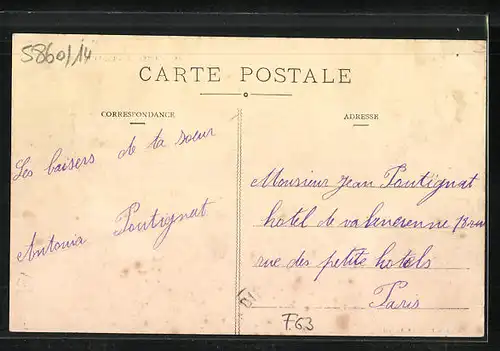 5860/14
CARTE POSTALE
CORRESPONDANCE
ADRESSE
Les baisers de ta soeur
Antonia Pontignat
Monsieur Jean Pontignat
hotel de valencienne
rue des petits hotels
Paris
F63